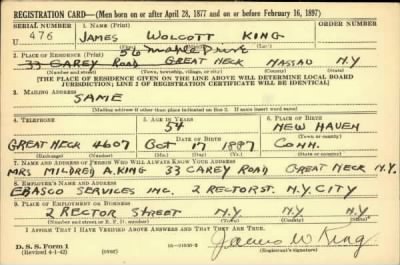 REGISTRATION CARD—(Men born on or after April 28, 1877 and on or before February 16, 1897)
SERIAL NUMBER 1. NAME (Print) ORDER NUMBER
U 476 JAMES WOLCOTT KING
56 Maple Drive
2. PLACE OF RESIDENCE (Print)
33 CAREY ROAD GREAT NECK NASSAU N.Y
(Number and street) (Town, township, village, or city) (County) (State)
[THE PLACE OF RESIDENCE GIVEN ON THE LINE ABOVE WILL DETERMINE LOCAL BOARD
JURISDICTION; LINE 2 OF REGISTRATION CERTIFICATE WILL BE IDENTICAL]
3. MAILING ADDRESS
SAME
[Mailing address if other than place indicated on line 2. If same insert word same]
4. TELEPHONE 5. AGE IN YEARS 6. PLACE OF BIRTH
54 NEW HAVEN
DATE OF BIRTH (Town or county)
GREAT NECK 4607 OCT 17 1887 CONN.
(Exchange) (Number) (Mo.) (Day) (Yr.) (State or country)
7. NAME AND ADDRESS OF PERSON WHO WILL ALWAYS KNOW YOUR ADDRESS
MRS MILDRED A. KING 33 CAREY ROAD GREAT NECK N.Y.
8. EMPLOYER'S NAME AND ADDRESS
EBASCO SERVICES INC. 2 RECTOR ST. N.Y. CITY
9. PLACE OF EMPLOYMENT OR BUSINESS
2 RECTOR STREET N.Y. N.Y.
(Number and street or R. F. D. number) (Town) (County) (State)
I AFFIRM THAT I HAVE VERIFIED ABOVE ANSWERS AND THAT THEY ARE TRUE.
D. S. S. Form 1
(Revised 4-1-42) (over)
James W King
(Registrant's signature)